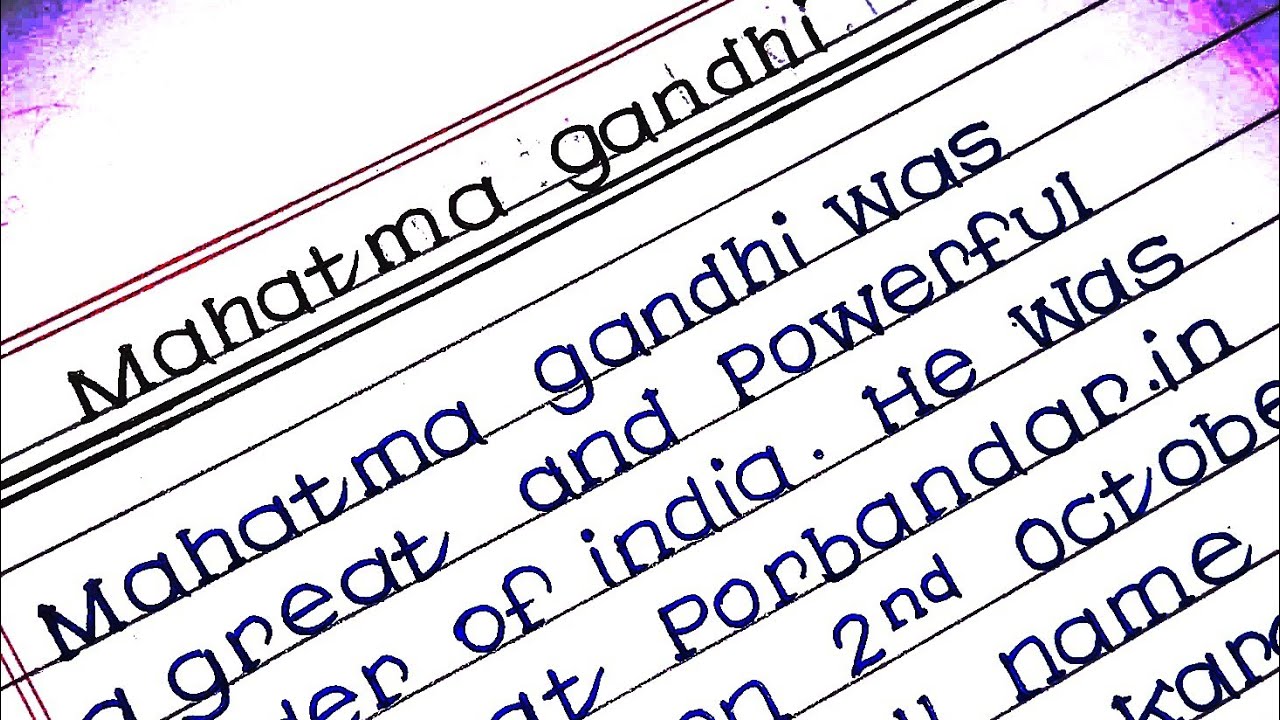 Mahatma gandhi
Mahatma gandhi was
a great and Powerful
of india. He was
at Porbandar.in
on 2nd october
name